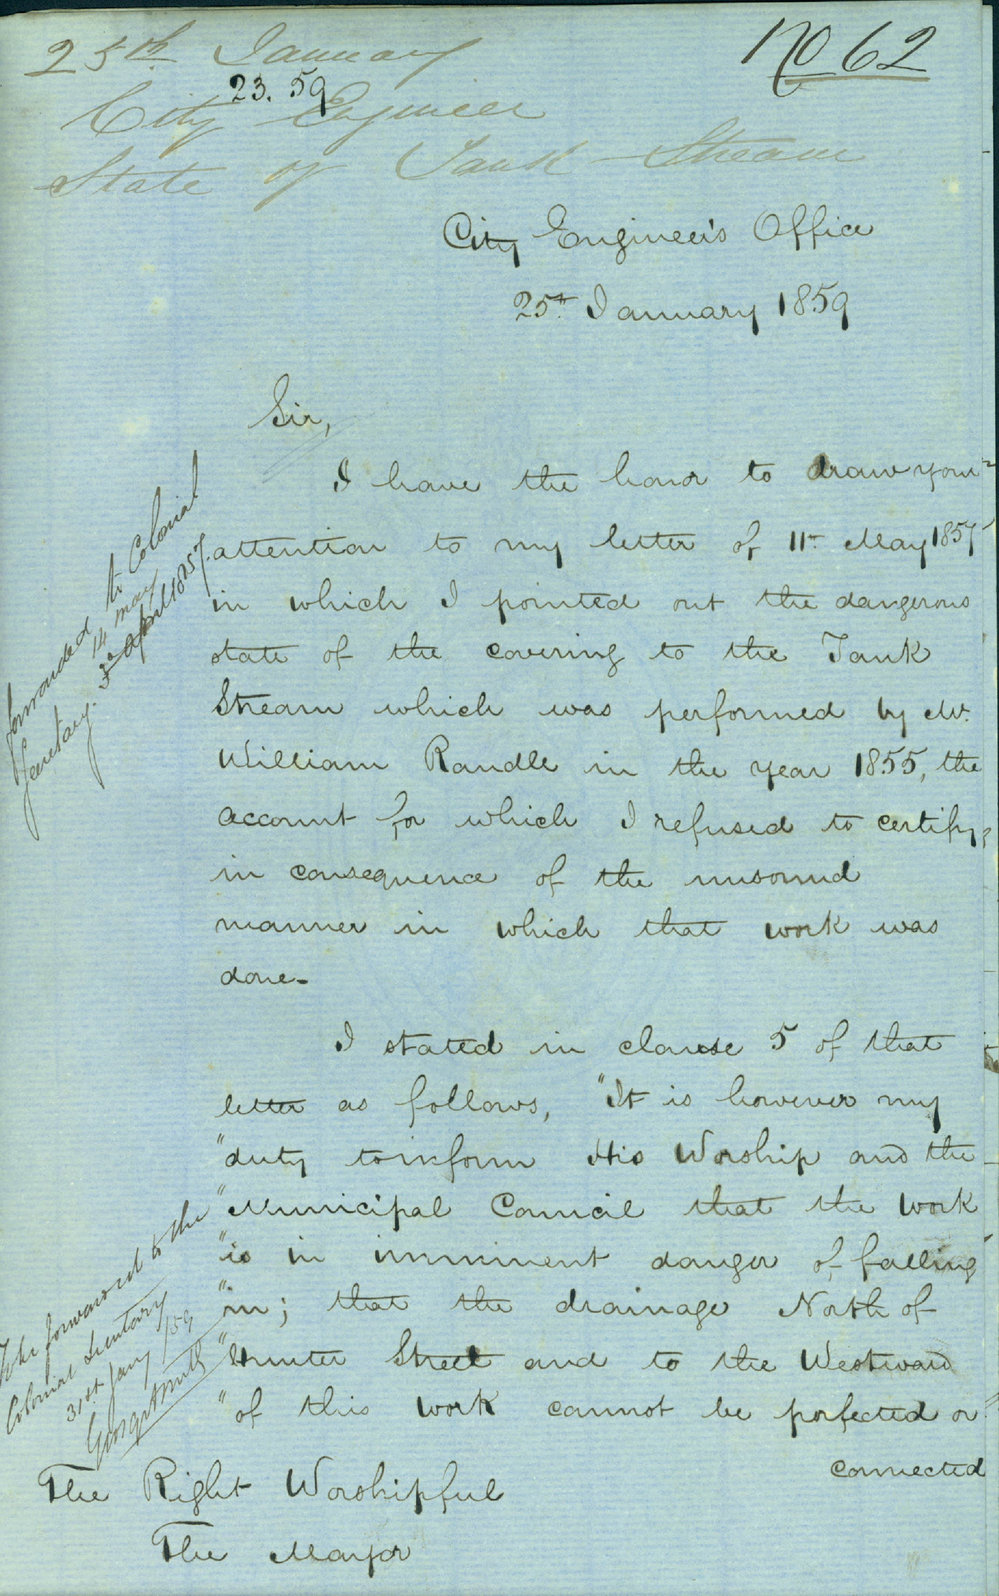 25th January
No 62
23. 59
City Engineer
State of Tank Stream
City Engineer's Office
25th January 1859
Sir,
I have the honor to draw your
attention to my letter of 11th May 1857
in which I pointed out the dangerous
state of the covering to the Tank
Stream which was performed by Mr.
William Randle in the year 1855, the
account for which I refused to certify,
in consequence of the unsound
manner in which that work was
done -
forwarded to Colonial
Secretary. 14 May
3rd April 1857.
I stated in clause 5 of that
letter as follows, "It is however my
"duty to inform His Worship and the
"Municipal Council that the work
"is in imminent danger of falling
"in; that the drainage North of
"Hunter Street and to the Westward
"of this work cannot be perfected or
connected
To be forwarded to the
Colonial Secretary
31st Jany /59
The Right Worshipful
The Mayor